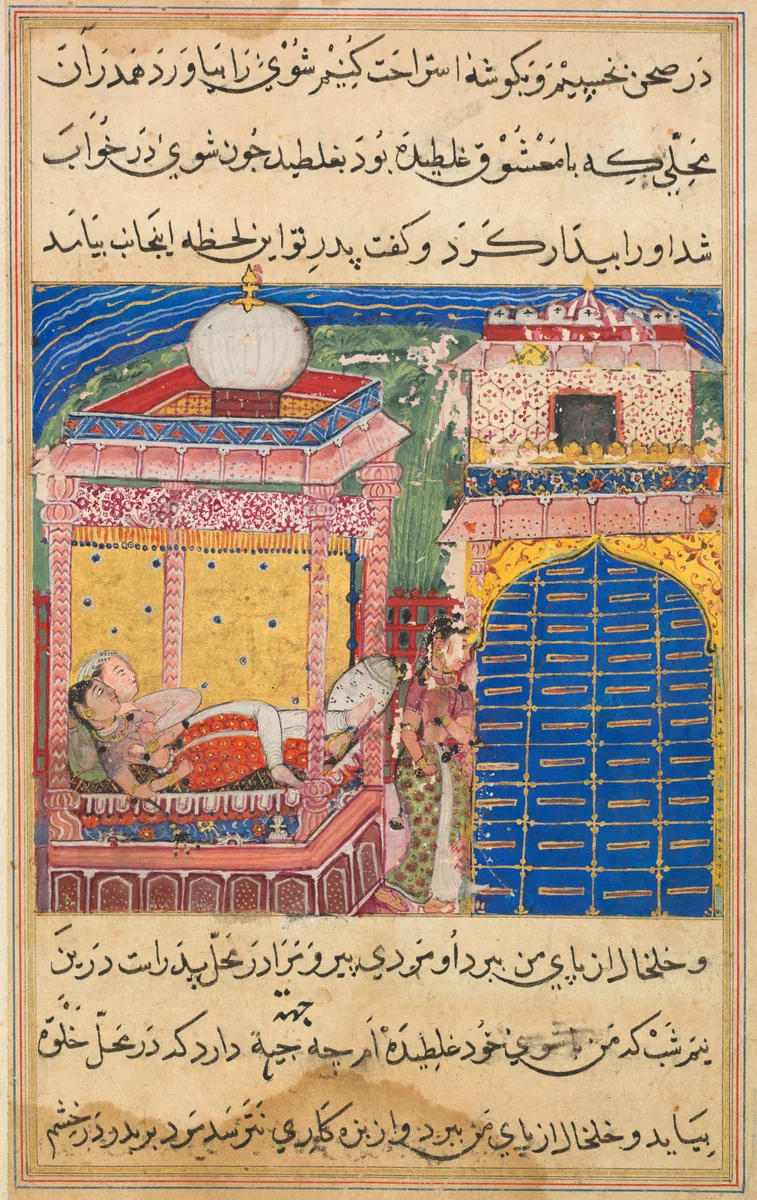 در صحن نخسپیم و بگوشهٔ استراحت کنیم شوی را بیاورد همدران
محلّی که با معشوق غلطیده بود بغلطید چون شوی در خواب
شد او را بیدار کرد و کفت پدرِ تو این لحظه اینجانب بیامد
و خلخال از پای من ببرد او مردی پیر و مرا در محلّ پدر است درین
نیم شب که من با شوی خود غلطیده ام چه جهة دارد که در محلّ خلوة
بیاید و خلخال از پای من ببرد و از بزه کاری نترسد مرد بر بدو در خشم